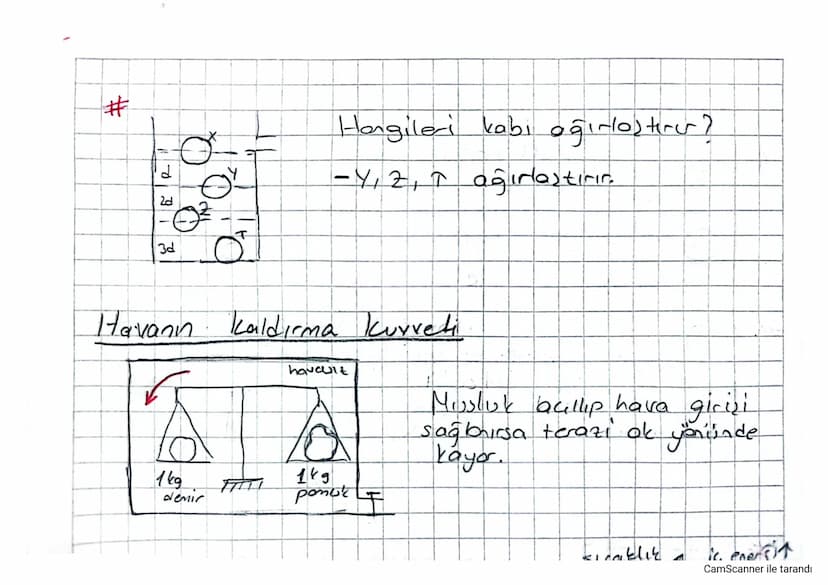 #
Hangileri kabı ağırlaştırır?
- Y, Z, T ağırlaştırır.
X
d
Y
2d
Z
3d
T
Havanın Kaldırma Kuvveti
havasız
Musluk açılıp hava girişi
sağlanırsa terazi ok yönünde
kayar.
1kg
demir
1kg
pamuk
sıcaklık iç enerji↑
CamScanner ile tarandı